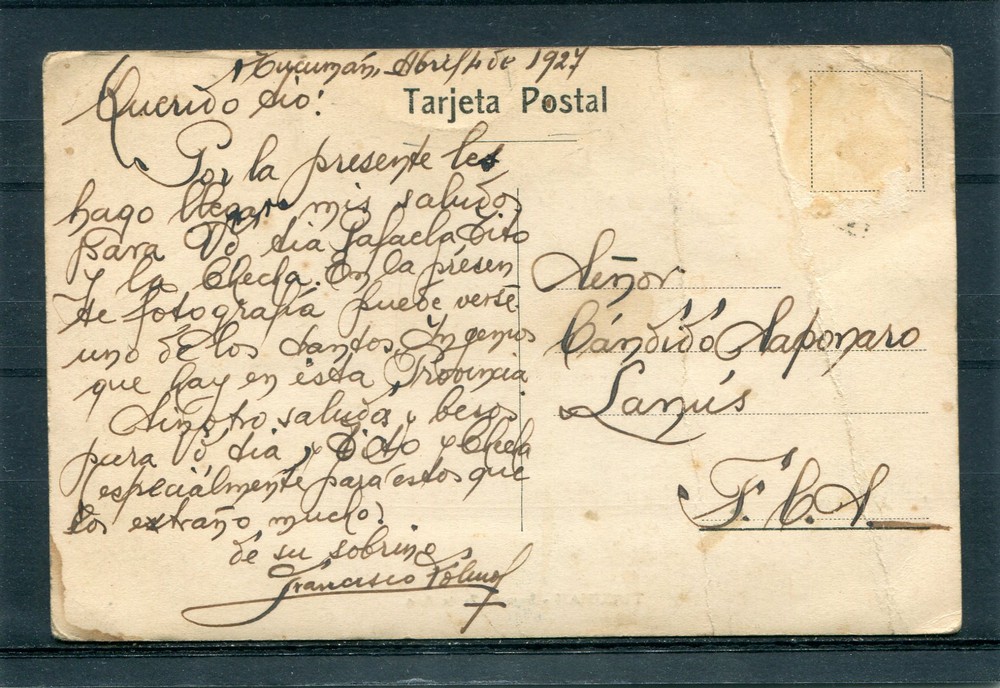 Tucumán, Abril 4 de 1927
Tarjeta Postal
Querido tio:
Por la presente les
hago llegar mis saludos
para Vd tia Rafaela Tito
y la Checha. En la presen
te fotografía puede verse
uno de los tantos Ingenios
que hay en ésta Provincia
Sin otro, saludos y besos
para Vd tia y Tito y Chela
(especialmente para éstos que
los extraño mucho.
de su sobrino
Francisco
Señor
Cándido Saponaro
Lanús
F. C. S.